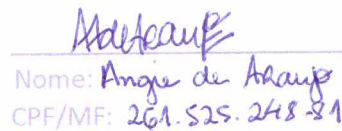 Nome: Angie de Araujo
CPF/MF: 261.525.248-81